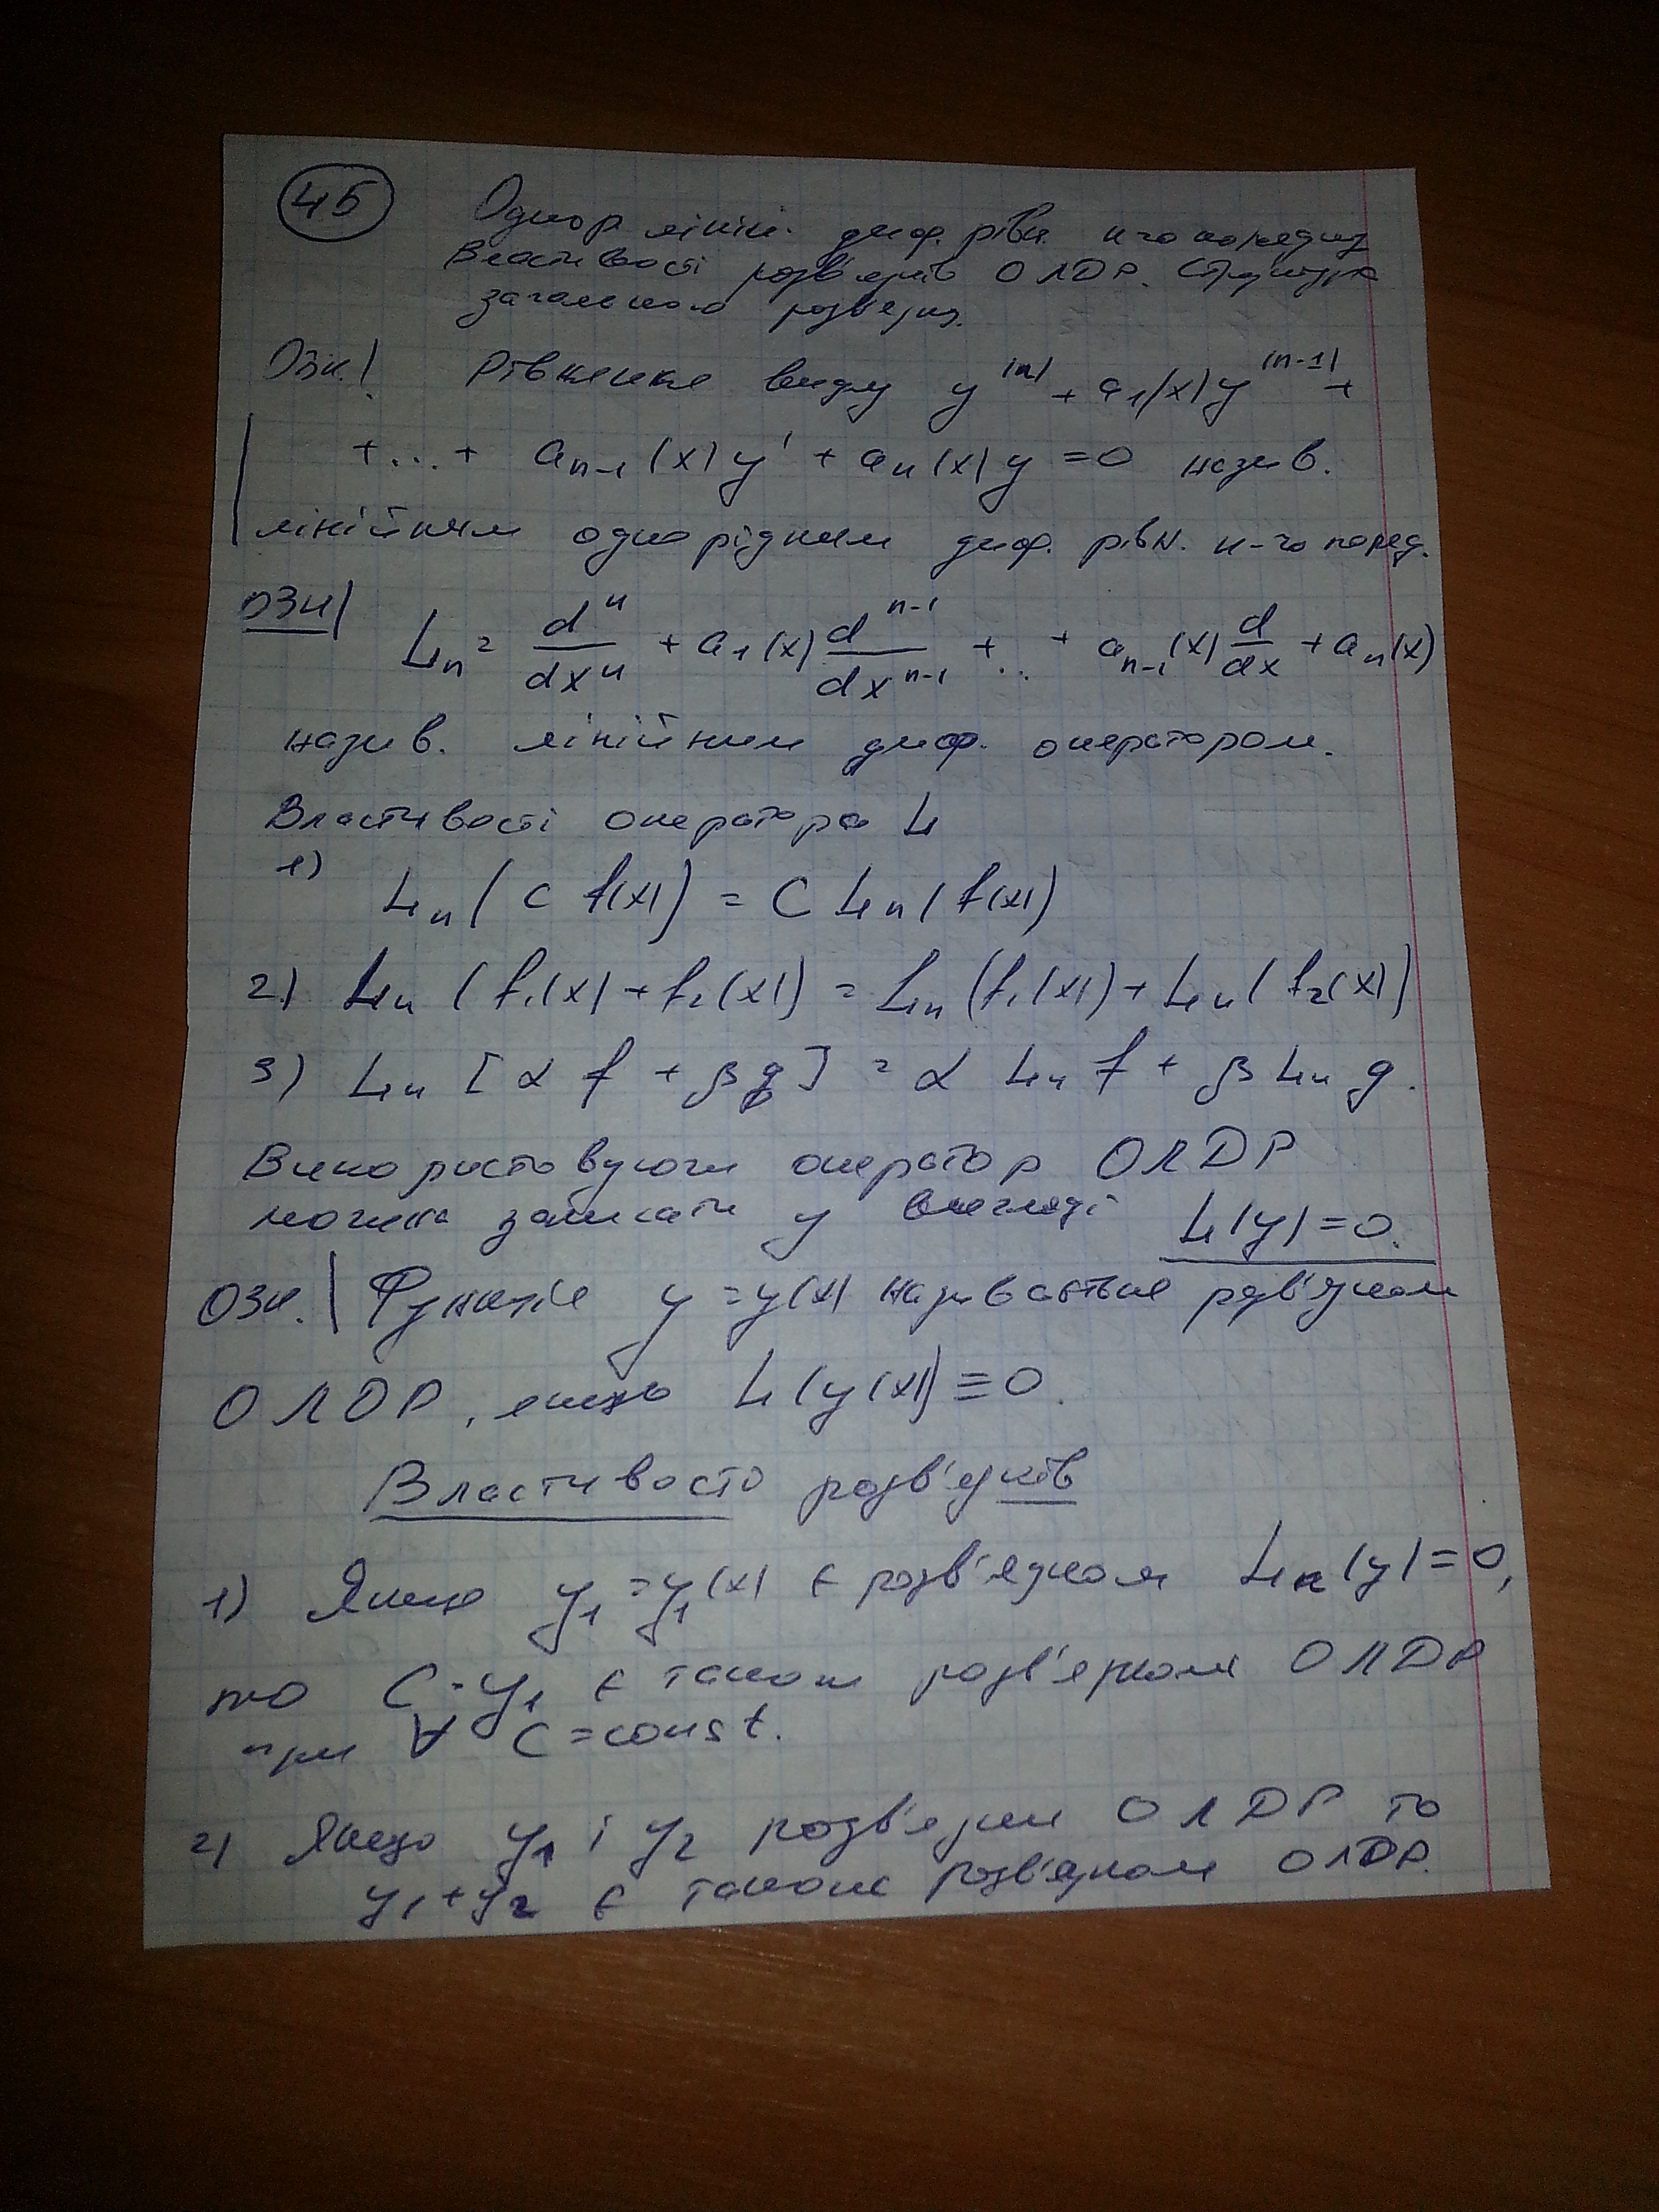 45
Однор лінін. диф. рівн. n-го порядку
Властивості розв'язків ОЛДР. Структура
загального розв'язку.
Озн. Рівняння виду y⁽ⁿ⁾ + a₁(x)y⁽ⁿ⁻¹⁾ +
+...+ aₙ₋₁(x)y' + aₙ(x)y = 0 назив.
лінійним однорідним диф. рівн. n-го поряд.
ОЗН Lₙ = dⁿ/dxⁿ + a₁(x) dⁿ⁻¹/dxⁿ⁻¹ +...+ aₙ₋₁(x) d/dx + aₙ(x)
назив. лінійним диф. оператором.
Властивості оператора L
1)
Lₙ(C f(x)) = C Lₙ(f(x))
2) Lₙ(f₁(x)+f₂(x)) = Lₙ(f₁(x)) + Lₙ(f₂(x))
3) Lₙ[α f + β g] = α Lₙ f + β Lₙ g.
Використовуючи оператор ОЛДР
можна записати у вигляді L(y)=0.
ОЗН. Функція y=y(x) називається розв'язком
ОЛДР, якщо L(y(x)) ≡ 0.
Властивості розв'язків
1) Якщо y₁=y₁(x) є розв'язком Lₙ(y)=0,
то C·y₁ є також розв'язком ОЛДР
при ∀ C=const.
2) Якщо y₁ і y₂ розв'язки ОЛДР то
y₁+y₂ є також розв'язком ОЛДР.